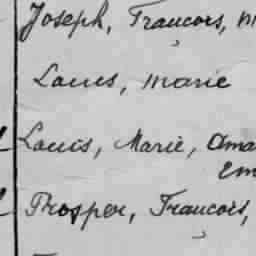 Joseph, Francois, m
Louis, marie
Louis, Marie, Ama
Em
Prosper, Francois,